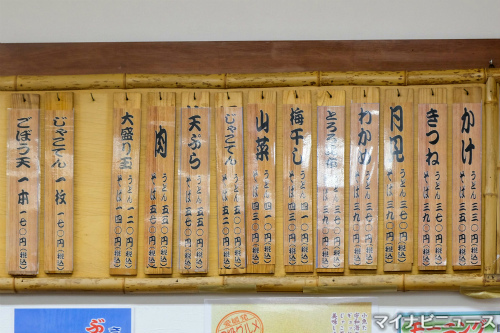 かけ
うどん 三三〇円(税込)
そば 三五〇円(税込)
きつね
うどん 三七〇円(税込)
そば 三九〇円(税込)
月見
うどん 三七〇円(税込)
そば 三九〇円(税込)
わかめ
うどん 三七〇円(税込)
そば 三九〇円(税込)
とろろ昆布
うどん 三七〇円(税込)
そば 三九〇円(税込)
梅干し
うどん 三九〇円(税込)
そば 四一〇円(税込)
山菜
うどん 四一〇円(税込)
そば 四三〇円(税込)
じゃこてん
うどん
そば 五二〇円(税込)
天ぷら
うどん
そば 五五〇円(税込)
肉
うどん 五五〇円(税込)
そば 五七〇円(税込)
大盛り玉
うどん 一二〇円(税込)
そば 一四〇円(税込)
じゃこてん 一枚 一七〇円(税込)
ごぼう天 一本 一七〇円(税込)
マイナビニュース